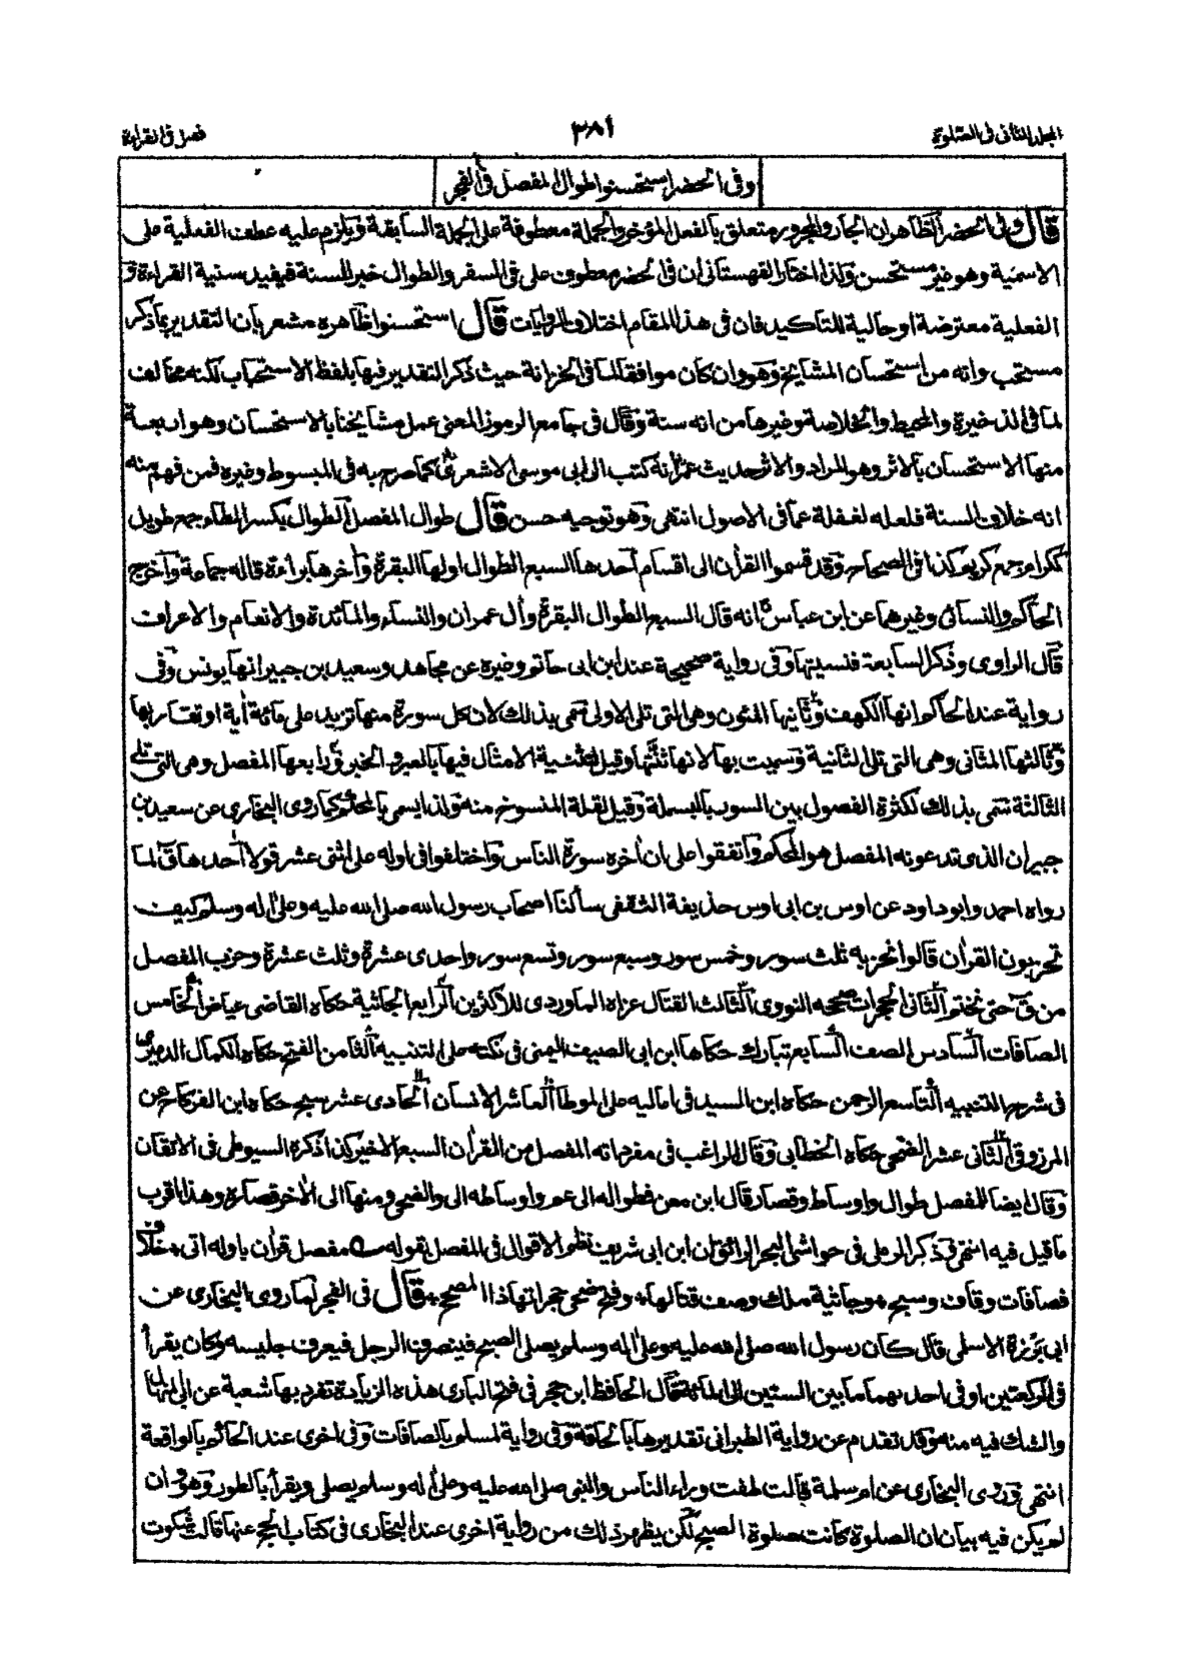 المجلد الثاني في الصلوة
٣٨١
فصل في القراءة
وفي الحضر استحسنوا طوال المفصل في الفجر
قال وفي الحضر الظاهر ان الجار والمجرور متعلق بالفعل المؤخر والجملة معطوفة على الجملة السابقة ويلزم عليه عطف الفعلية على
الاسمية وهو غير مستحسن ولذا اختار القهستاني ان في الحضر معطوف على في السفر والطوال خبر للسنة فيفيد سنية القراءة و
الفعلية معترضة او حالية للتاكيد فان في هذا المقام اختلاف الروايات قال استحسنوا ظاهره مشعر بان التقدير بما ذكر
مستحب وانه من استحسان المشايخ وهو وان كان موافقا لما في الخزانة حيث ذكر التقدير فيها بلفظ الاستحباب لكنه مخالف
لما في الذخيرة والمحيط والخلاصة وغيرها من انه سنة وقال في جامع الرموز المعنى عمل مشايخنا بالاستحسان وهو اربعة
منها الاستحسان بالاثر وهو المراد والاثر حديث عمر انه كتب الى ابي موسى الاشعري كما صرح به في المبسوط وغيره فمن فهم منه
انه خلاف السنة فلعله لغفلة عما في الاصول انتهى وهو توجيه حسن قال طوال المفصل الطوال بكسر الطاء جمع طويل
ككرام جمع كريم كذا في الصحاح وقد قسموا القرأن الى اقسام احدها السبع الطوال اولها البقرة وأخرها براءة قاله جماعة واخرج
الحاكم والنسائي وغيرهما عن ابن عباس انه قال السبع الطوال البقرة وأل عمران والنساء والمائدة والانعام والاعراف
قال الراوي وذكر السابعة فنسيتها وفي رواية صحيحة عند ابن ابي حاتم وغيره عن مجاهد وسعيد بن جبير انها يونس وفي
رواية عند الحاكم انها الكهف وثانيها المئون وهي التي تلي الاولى سمي بذلك لان كل سورة منها تزيد على مائة أية او تقاربها
وثالثها المثاني وهي التي تلي الثانية وسميت بها لانها ثنتها وقيل لتثنية الامثال فيها بالعبر والخبر ورابعها المفصل وهي التي تلي
الثالثة سمي بذلك لكثرة الفصول بين السور بالبسملة وقيل لقلة المنسوخ منه ولذا يسمى بالمحكم كما روى البخاري عن سعيد بن
جبير ان الذي تدعونه المفصل هو المحكم واتفقوا على ان أخره سورة الناس واختلفوا في اوله على اثنى عشر قولا احدها ق لما
رواه احمد وابو داود عن اوس بن ابي اوس حذيفة الثقفي سألنا اصحاب رسول الله صلى الله عليه وعلى اله وسلم كيف
تحزبون القرأن قالوا نحزبه ثلث سور وخمس سور وسبع سور وتسع سور واحدى عشرة وثلث عشرة وحزب المفصل
من ق حتى نختم الثاني الحجرات صححه النووي الثالث القتال عزاه الماوردي للاكثرين الرابع الجاثية حكاه القاضي عياض الخامس
الصافات السادس الصف السابع تبارك حكاها ابن ابي الصيف اليمني في نكته على التنبيه الثامن الفتح حكاه الكمال الدميري
في شرح التنبيه التاسع الرحمن حكاه ابن السيد في اماليه على الموطا العاشر الانسان الحادي عشر سبح حكاه ابن الفركاح عن
المرزوقي الثاني عشر الضحى حكاه الخطابي وقال الراغب في مفرداته المفصل من القرأن السبع الاخير كذا ذكره السيوطي في الاتقان
وقال ايضا للمفصل طوال واوساط وقصار قال ابن معن فطواله الى عم واوساطه الى والضحى ومنها الى الأخر قصاره وهذا اقرب
ما قيل فيه انتهى وذكر الرملي في حواشي البحر الرائق ان ابن ابي شريف نظم الاقوال في المفصل بقوله مفصل قرأن باوله اتى خلاف
فصافات وقاف وسبح وجاثية ملك وصف قتالها وفتح ضحى حجراتها ذا المصحح قال في الفجر لما روى البخاري عن
ابي برزة الاسلمي قال كان رسول الله صلى الله عليه وعلى اله وسلم يصلي الصبح فينصرف الرجل فيعرف جليسه وكان يقرأ
في الركعتين او في احدهما ما بين الستين الى المائة قال الحافظ ابن حجر في فتح الباري هذه الزيادة تفرد بها شعبة عن ابي المنهال
والشك فيه منه وقد تقدم عن رواية الطبراني تقديرها بالحاقة وفي رواية لمسلم بالصافات وفي اخرى عند الحاكم بالواقعة
انتهى وروى البخاري عن ام سلمة قالت طفت وراء الناس والنبي صلى الله عليه وعلى اله وسلم يصلي ويقرأ بالطور وهو وان
لم يكن فيه بيان ان الصلوة كانت صلوة الصبح لكن يظهر ذلك من رواية اخرى عند البخاري في كتاب الحج عنها قالت شكوت